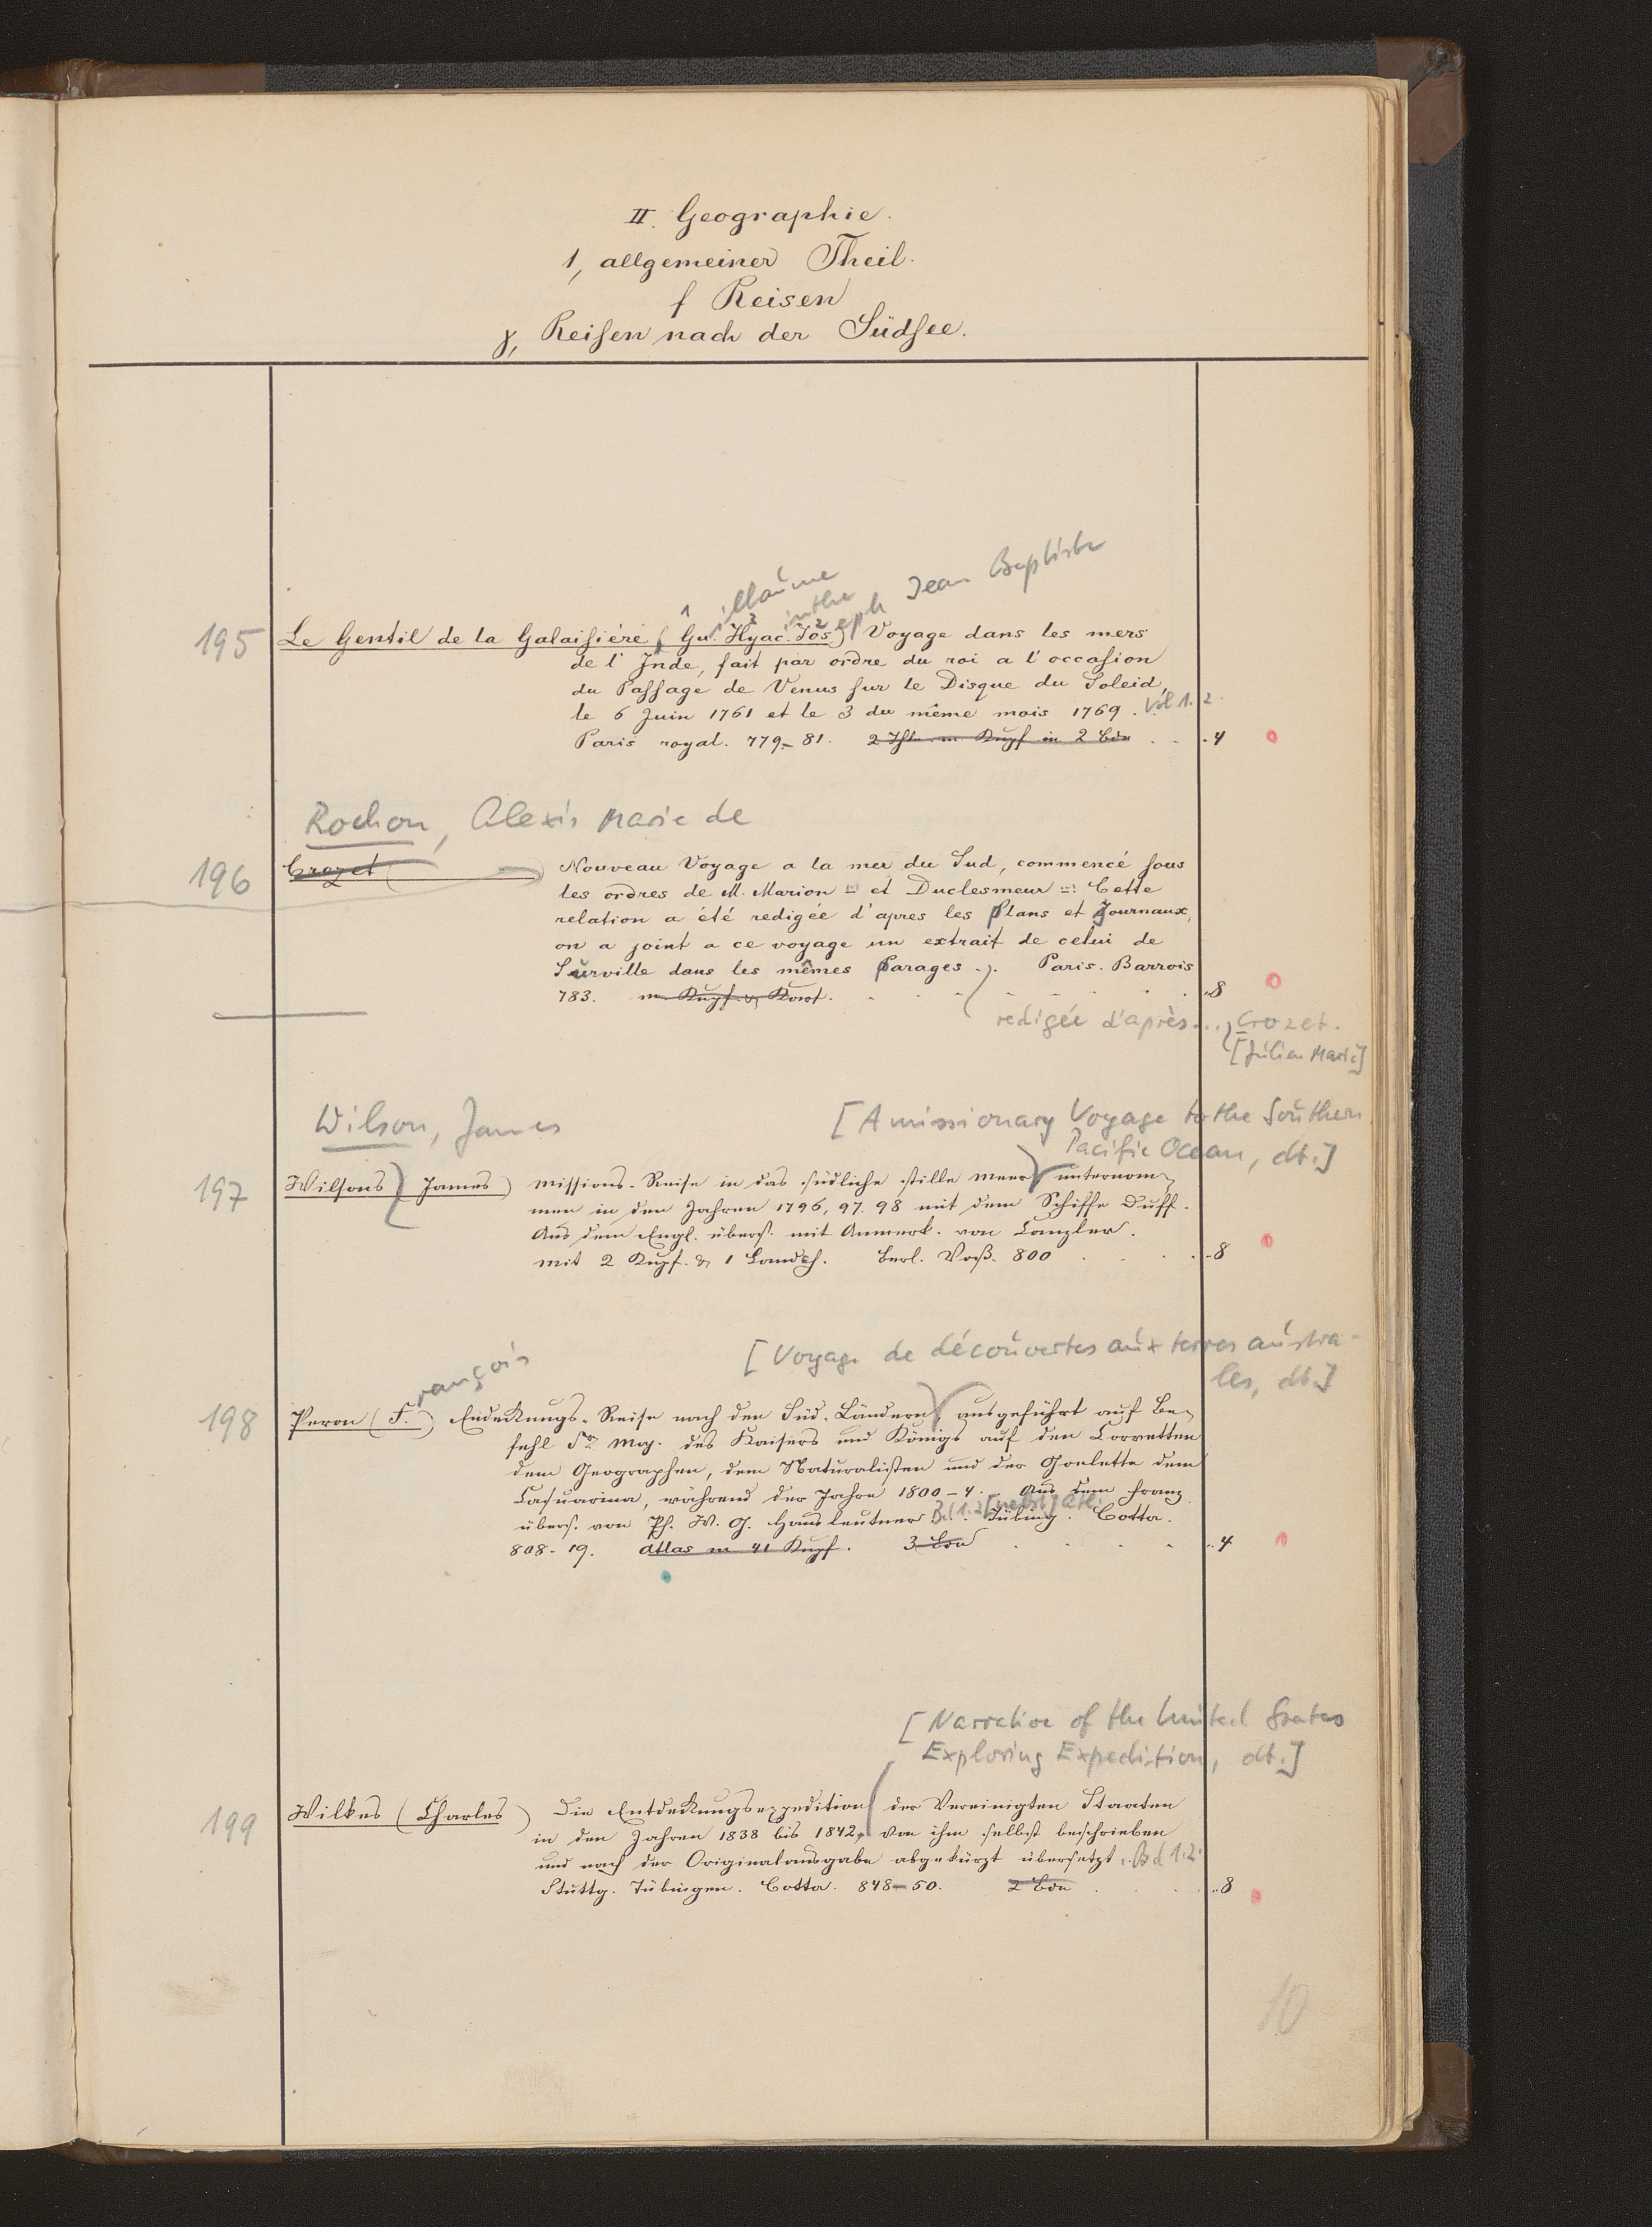 II. Geographie.
1, allgemeiner Theil.
f Reisen
γ, Reisen nach der Südsee.
illaume inthe eph Jean Baptiste
1 3 2
195 Le Gentil de la Galaisiére (Gu. Hyac. Jos) Voyage dans les mers
de l' Jnde, fait par ordre du roi a l'occasion
du Passage de Venus sur le Disque du Soleid,
le 6 Juin 1761 et le 3 du même mois 1769. Vol 1. 2
Paris royal. 779-81. 2 Thl. m Kupf in 2 Bdn . . . 4 0
Rochon, Alexis Marie de
196 Crozet ( ) Nouveau Voyage a la mer du Sud, commencé sous
les ordres de M. Marion et Duclesmeur Cette
relation a été redigée d'apres les Plans et Journaux,
on a joint a ce voyage un extrait de celui de
Surville dans les mêmes Parages.). Paris. Barrois
783. m Kupf. u. Kart. . . . . . . 8 0
redigée d'après..., Crozet.
[Julien Marie]
Wilson, James
[A missionary Voyage to the Southern
Pacific Ocean, dt.]
197 Wilsons (James) Missions-Reise in das südliche stille Meer unternom-
men in den Jahren 1796, 97. 98 mit dem Schiffe Duff.
Aus dem Engl. übers. mit Anmerk. von Canzler.
mit 2 Kupf. & 1 Landch. Berl. Voß. 800 . . . 8 0
[Voyage de découvertes aux terres austra-
les, dt.]
rançois
198 Peron (F.) Endeckungs-Reise nach den Süd-Ländern, ausgeführt auf Be-
fehl Sr. Maj. des Kaisers und Königs auf den Corvetten
dem Geographen, dem Naturalisten und der Goelette dem
Casuarina, während der Jahre 1800-4. Aus dem Franz.
übers. von Ph. W. G. Hausleutner Bd. 1. 2 [nebst] Atl. Tübing. Cotta.
808-19. Atlas m 41 Kupf. 3 Bdn . . . . 4 0
[Narrative of the United States
Exploring Expedition, dt.]
199 Wilkes (Charles) Die Entdeckungsexpedition der Vereinigten Staaten
in den Jahren 1838 bis 1842, von ihm selbst beschrieben
und nach der Originalausgabe abgekürzt übersetzt. Bd 1.2.
Stuttg. Tübingen. Cotta. 848-50. 2 Bdn . . . 8
10